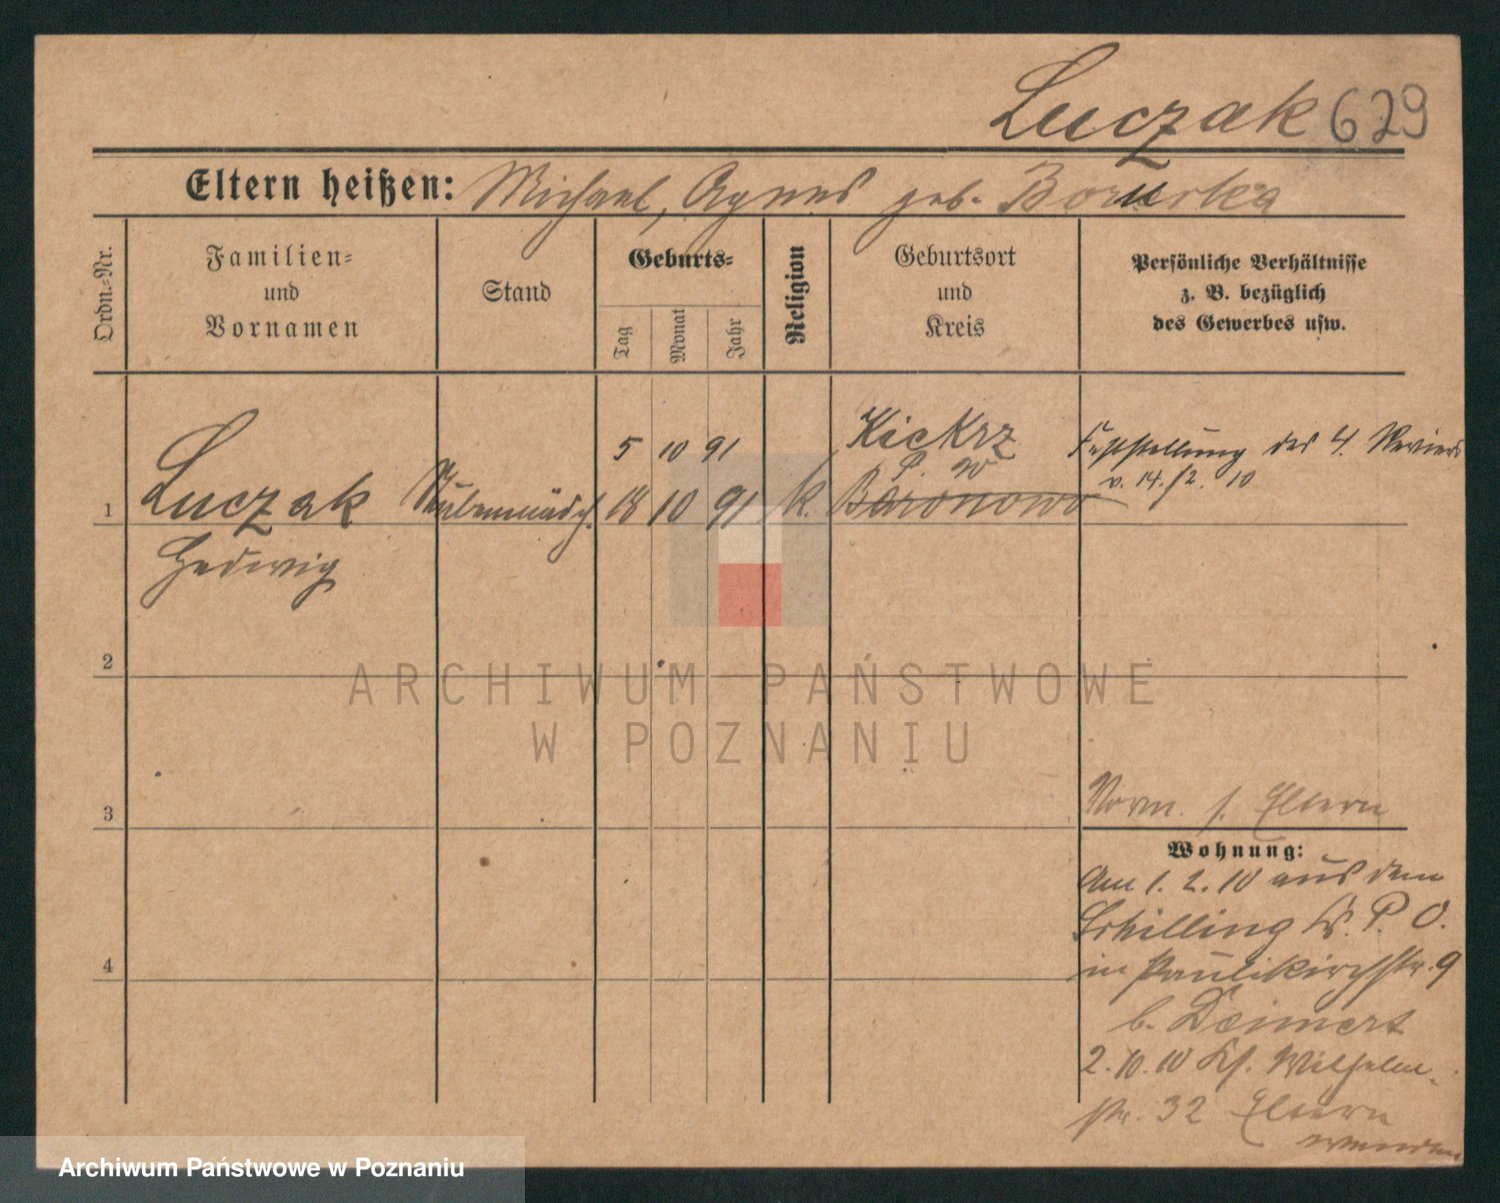 Luczak 629
Eltern heißen: Michael, Agnes geb.
Ordn.-Nr.
Familien-
und
Vornamen
Stand
Geburts-
Tag
Monat
Jahr
Religion
Geburtsort
und
Kreis
Persönliche Verhältnisse
z. B. bezüglich
des Gewerbes usw.
5 10 91
Kiekrz
P. W
Feststellung des 4. Reviers
v. 14./2. 10
1 Luczak Stubenmädch. 18 10 91 k. Baronowo
Hedwig
2
3
Vorm. s. Eltern
Wohnung:
Am 1. 2. 10 aus dem
Schilling P. O.
in Paulikirchstr. 9
4
b. Deimert
2. 10. 10 Wilhelm-
str. 32 Eltern
wenden
ARCHIWUM PAŃSTWOWE
W POZNANIU
Archiwum Państwowe w Poznaniu